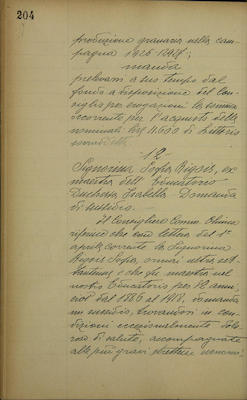 204
produzione granaria nella cam-
pagna 1926-1927;
manda
prelevarsi a suo tempo dal
fondo a disposizione del Con-
siglio per erogazioni la somma
occorrente per l'acquisto delle
nominali
12
Signorina Sofia Bigois, ex
maestra dell'Educatorio
Duchessa Isabella. Domanda
di sussidio.
Il Consigliere Comm.
riferisce che con lettera del 1°
aprile corrente la Signorina
Bigois Sofia, ormai
e che fu maestra nel
nostro Educatorio per 32 anni
cioè dal 1886 al 1918, domanda
un sussidio, trovandosi in con-
dizioni eccezionalmente dolo-
rose di salute, accompagnate
alle più gravi strettezze